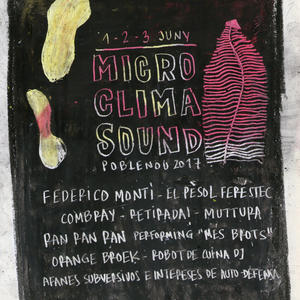 1-2-3 JUNY
MICRO
CLIMA
SOUND
POBLENOU 2017
FEDERICO MONTI - EL PÈSOL FERÉSTEC
COMBRAY - RETIRADA! - MUTTURA
RAN RAN RAN PERFORMING "MÉS BROTS"
ORANGE BROEK - ROBOT DE CUINA DJ
AFANES SUBVERSIVOS E INTERESES DE AUTO DEFENSA